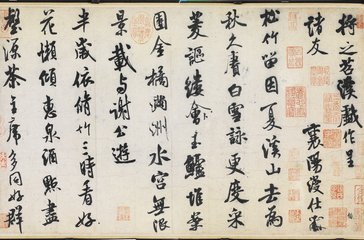 將之苕溪戲作呈
諸友
襄陽漫仕黻
松竹留因夏溪山去為
秋久賡白雪詠更度采
菱謳縷會玉鱸堆案
團金橘滿洲水宮無限
景載與謝公遊
半歲依脩竹三時看好
花懶傾惠泉酒點盡
壑源茶主席多同好群